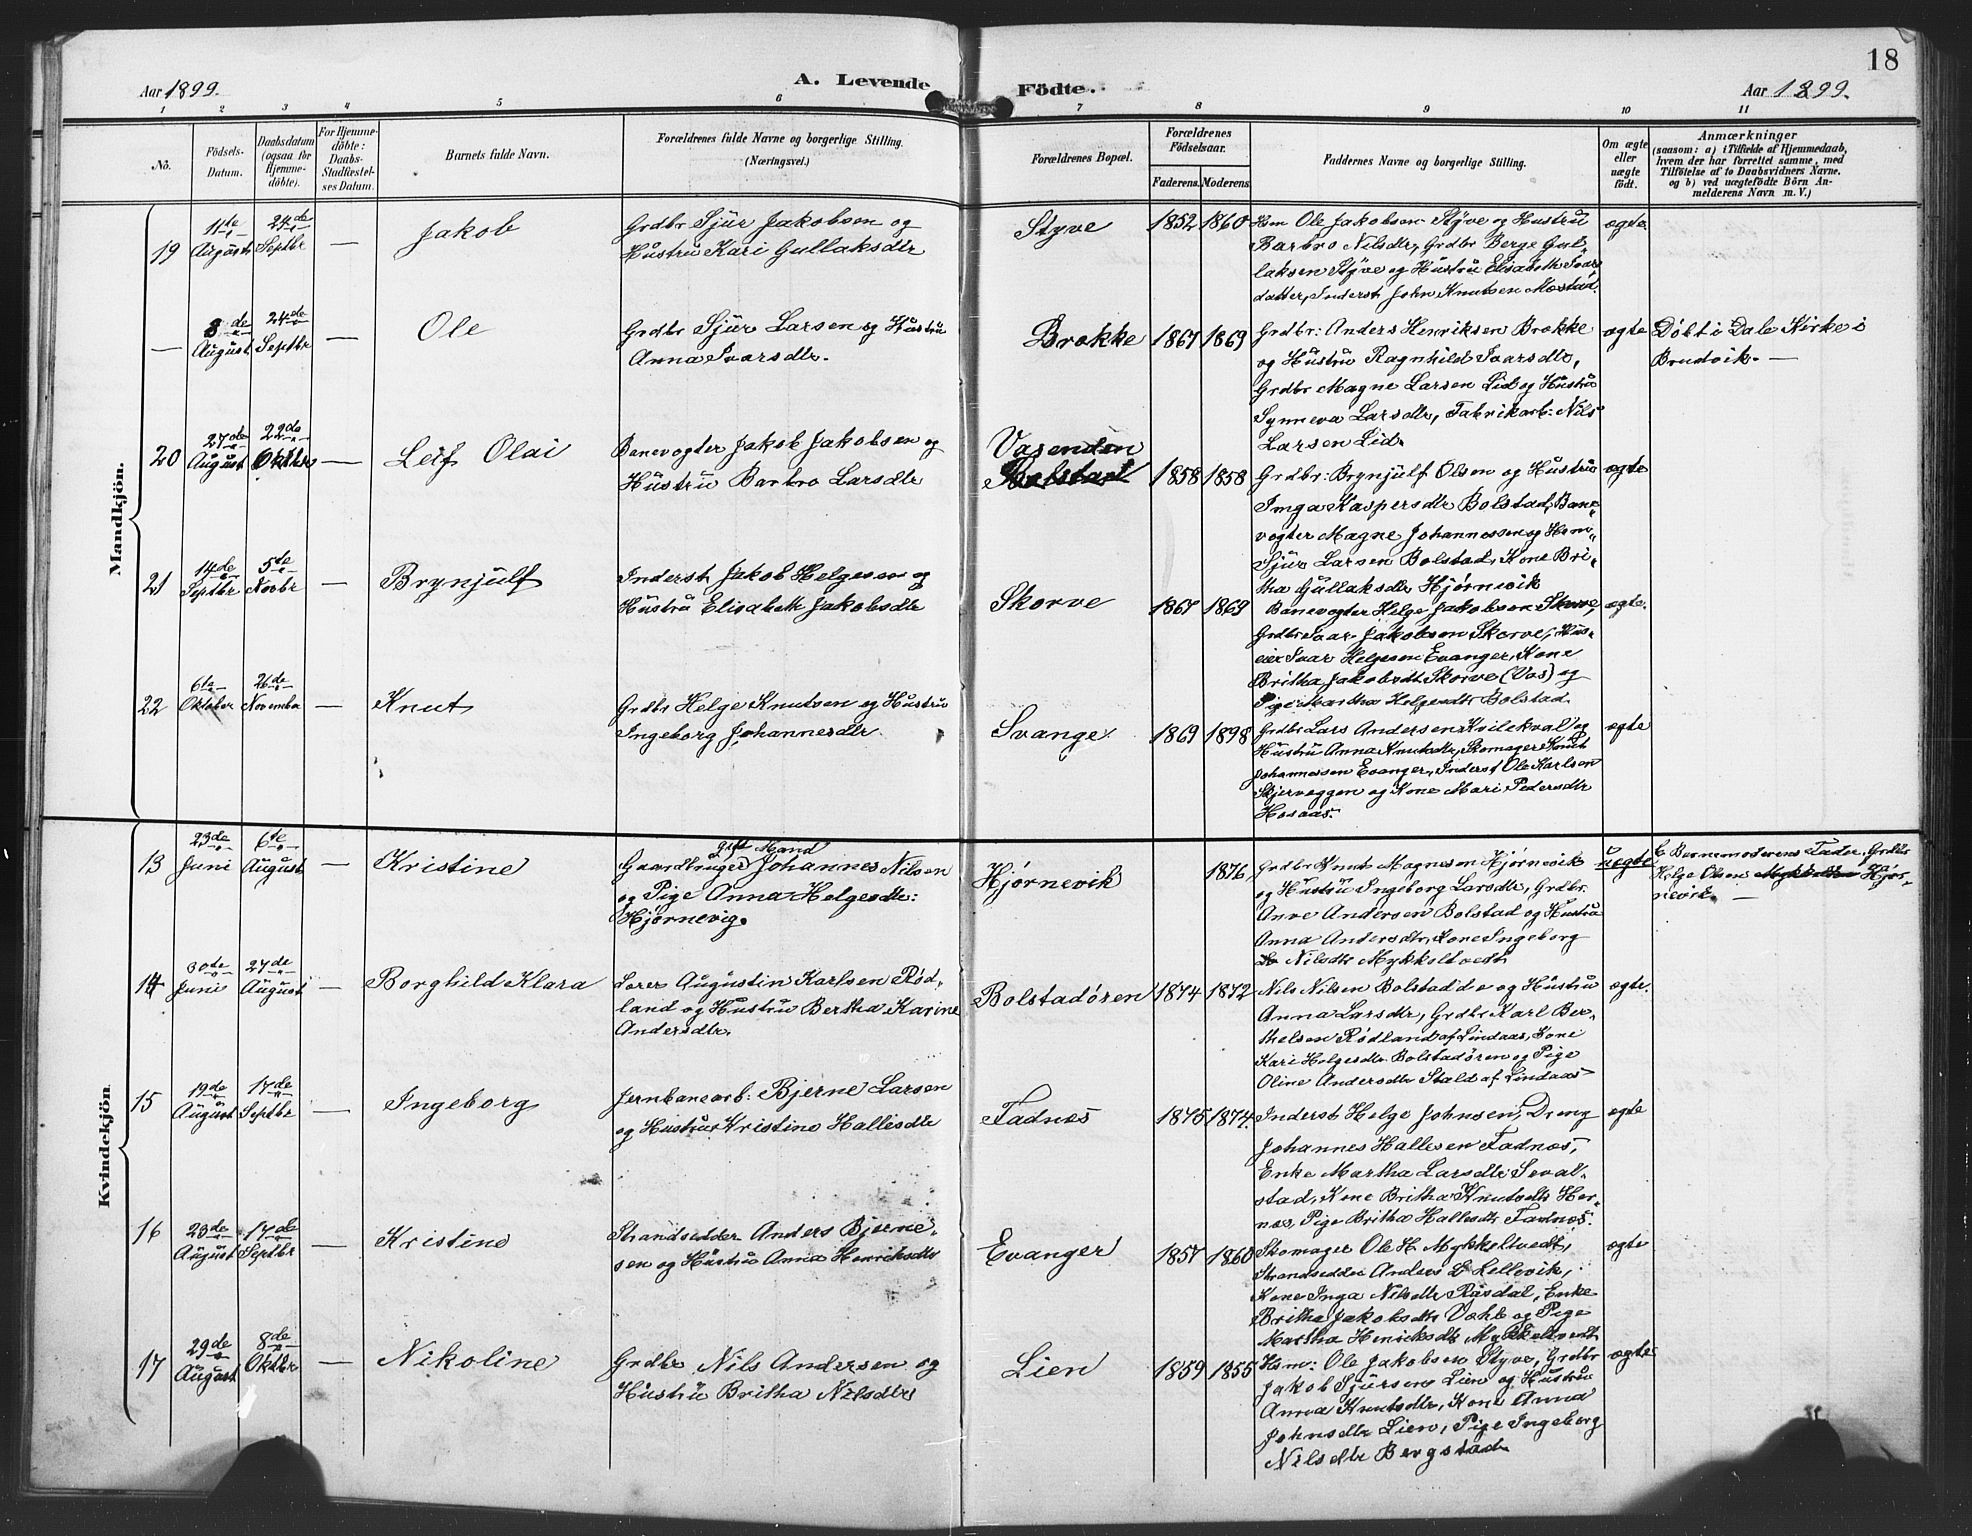 18
Aar 1899.
A. Levende
Födte.
Aar 1899.
1 2 3 4 5 6 7 8 9 10 11
No.
Födsels-
Datum.
Daabsdatum
(ogsaa for
Hjemme-
döbte).
For Hjemme-
döbte:
Daabs-
Stadfæstel-
ses Datum.
Barnets fulde Navn.
Forældrenes fulde Navne og borgerlige Stilling.
(Næringsvei.)
Forældrenes Bopæl.
Forældrenes
Födselsaar.
Faderens. Moderens.
Faddernes Navne og borgerlige Stilling.
Om ægte
eller
uægte
födt.
Anmærkninger
(saasom: a) i Tilfælde af Hjemmedaab,
hvem der har forrettet samme, med
Tilföielse af to Daabsvidners Navne.
og b) ved uægtefödte Börn An-
melderens Navn m. V.)
Mandkjön.
19
11te
August
24de
Septbr
—
Jakob
Grdbr Sjur Jakobsen og
Hustru Kari Gullaksdtr
Styve
1852 1860
Hsm Ole Jakobsen Styve og Hustru
Barbro Nilsdtr, Grdbr Berge Gul-
laksen Styve og Hustru Elisabeth Ivars
datter, Inderst John Knutsen Mostad.
ægte
—
3de
August
24de
Septbr
—
Ole
Grdbr Sjur Larsen og Hustru
Anna Ivarsdtr.
Brække
1867 1869
Grdbr: Anders Henriksen Brække
og Hustru Ragnhild Ivarsdtr,
Grdbr Magne Larsen Lid og Hustru
Synneva Larsdtr, Fabrikarb: Nils
Larsen Lid.
ægte
Döbt i Dale Kirke i
Brudvik. —
20
27de
August
22de
Oktbr
—
Leif Olai
Banevogter Jakob Jakobsen og
Hustru Barbro Larsdtr
Vasenden
Bolstad
1858 1858
Grdbr: Brynjulf Olsen og Hustru
Inga Kaspersdtr Bolstad, Bane-
vogter Magne Johannessen og Hsm
Sjur Larsen Bolstad, Kone Bri-
tha Gullaksdtr Hjørnevik
ægte
21
14de
Septbr
5te
Novbr
—
Brynjulf
Inderst Jakob Helgesen og
Hustru Elisabeth Jakobsdtr
Skorve
1867 1869
Banevogter Helge Jakobsen Skorve,
Grdbr Ivar Jakobsen Skorve, Hus-
eier Ivar Helgesen Evanger, Kone
Britha Jakobsdtr Skorve (Vos) og
Pige Martha Helgesdtr Bolstad.
ægte.
22
6te
Oktober
26de
November
—
Knut
Grdbr Helge Knutsen og Hustru
Ingeborg Johannesdtr.
Svange
1869 1898
Grdbr Lars Andersen Kvilekval og
Hustru Anna Knutsdtr, Skomager Knut
Johannessen Evanger, Inderst Ole Karlsen
Skjerveggen og Kone Mari Pedersdtr
Hosaas.
ægte
Kvindekjön
13
23de
Juni
6te
August
—
Kristine
gift Mand
Gaardbruger Johannes Nilsen
og Pige Anna Helgesdtr:
Hjørnevig.
Hjørnevik
1876
Grdbr Knut Magnesen Hjørnevik
og Hustru Ingeborg Larsdtr, Grdbr.
Arve Andersen Bolstad og Hustru
Anna Andersdtr, Kone Ingeborg
Nilsdtr Mykkeltvedt
uægte
Barnemoderens Fader, Grdbr
Helge Olsen Mykkeltvedt Hjør-
nevik. —
14
30te
Juni
27de
August
—
Borghild Klara
Lærer Augustin Karlsen Rød-
land og Hustru Bertha Karine
Andersdtr.
Bolstadøren
1874 1872
Nils Nilsen Bolstad d.e og Hustru
Anna Larsdtr, Grdbr Karl Ber-
thelsen Rødland af Lindaas, Kone
Kari Helgesdtr Bolstadøren og Pige
Oline Andersdtr Stald af Lindaas
ægte.
15
19de
August
17de
Septbr
—
Ingeborg
Jernbanearb: Bjerne Larsen
og Hustru Kristine Hallesdtr
Fadnæs
1875 1874.
Inderst Helge Johnsen, Dreng
Johannes Hallesen Fadnæs,
Enke Martha Larsdtr Seval-
stad, Kone Britha Knutsdtr Her-
næs, Pige Britha Hallesdtr Fadnæs.
ægte
16
23de
August
17de
Septbr
—
Kristine
Strandsidder Anders Bjerne-
sen og Hustru Anna Henriksdtr
Evanger
1857 1860
Skomager Ole H. Mykkeltvedt,
Strandsidder Anders L Hellevik,
Kone Inga Nilsdtr Rasdal, Enke
Britha Jakobsdtr og Pige
Martha Henriksdtr Mykkeltvedt
ægte
17
29de
August
8de
Oktbr
—
Nikoline
Grdbr Nils Andersen og
Hustru Britha Nilsdtr
Lien
1859 1855
Hsm: Ole Jakobsen Styve, Grdbr
Jakob Sjursen Lien og Hustru
Anna Knutsdtr, Kone Anna
Johnsdtr Lien, Pige Ingeborg
Nilsdtr Bergstad
ægte